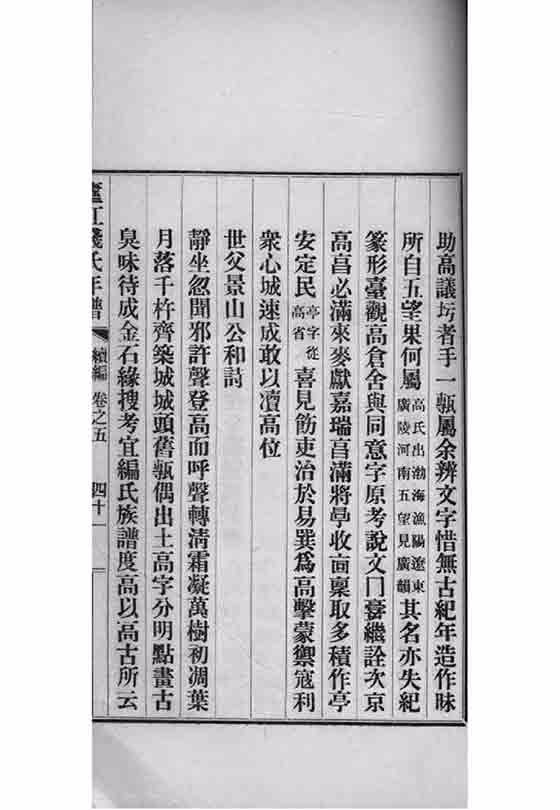 助高議圬者手一瓻屬余辨文字惜無古紀年造作昧
所自五望果何屬高氏出渤海漁陽遼東廣陵河南五望見廣韻其名亦失紀
篆形臺觀高倉舍與同意字原考說文冂亯繼詮次京
高亯必滿來麥獻嘉瑞亯滿將學收㐭稟取多積作亭
安定民亭字從高省喜見飭吏治於易巽爲高擊蒙禦寇利
衆心城速成敢以瀆高位
世父景山公和詩
靜坐忽聞邪許聲登高而呼聲轉淸霜凝萬樹初凋葉
月落千杵齊築城城頭舊瓻偶出土高字分明點畫古
臭味待成金石緣搜考宜編氏族譜度高以高古所云
廬江錢氏年譜 續編 卷之五 四十